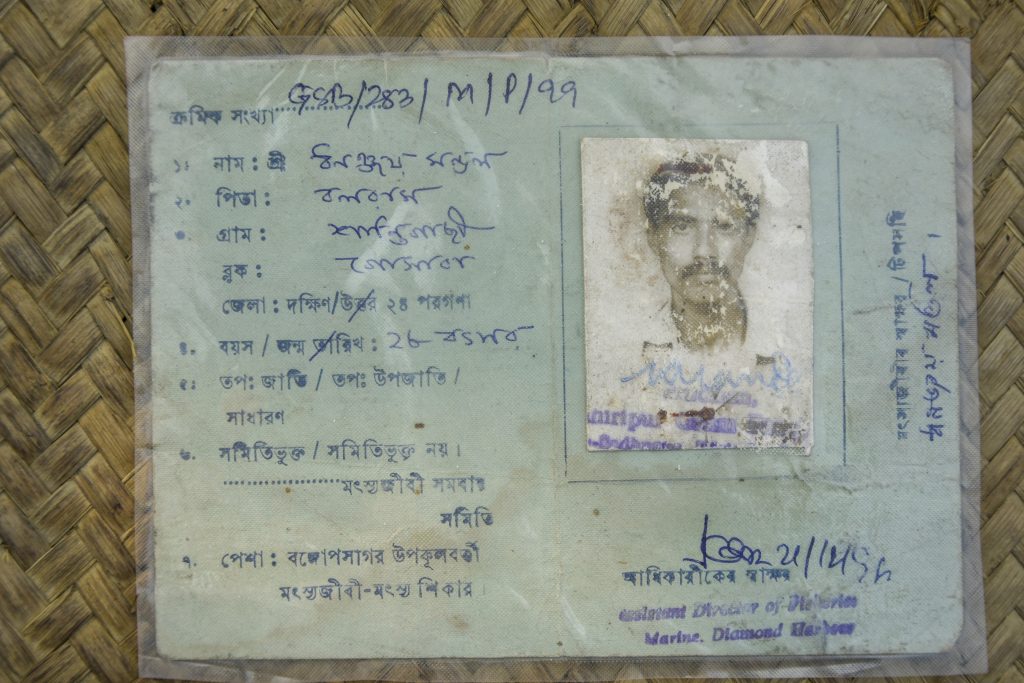 ক্রমিক সংখ্যা GSB/283/M/P/99
১। নাম : শ্রী ধনঞ্জয় মন্ডল
২. পিতা : বলরাম
৩. গ্রাম : শান্তিগাছী
ব্লক : গোসাবা
জেলা : দক্ষিণ/উত্তর ২৪ পরগণা
৪. বয়স / জন্ম তারিখ : ২৮ বৎসর
৫. তপ: জাতি / তপ: উপজাতি /
সাধারণ
৬. সমিতিভুক্ত / সমিতিভুক্ত নয়।
মৎস্যজীবী সমবায়
সমিতি
৭. পেশা : বঙ্গোপসাগর উপকূলবর্ত্তী
মৎস্যজীবী-মৎস্য শিকার
মৎস্যজীবীর স্বাক্ষর / টিপসহি
ধনঞ্জয় মণ্ডল।
আধিকারীকের স্বাক্ষর
Assistant Director of Fisheries
Marine, Diamond Harbour